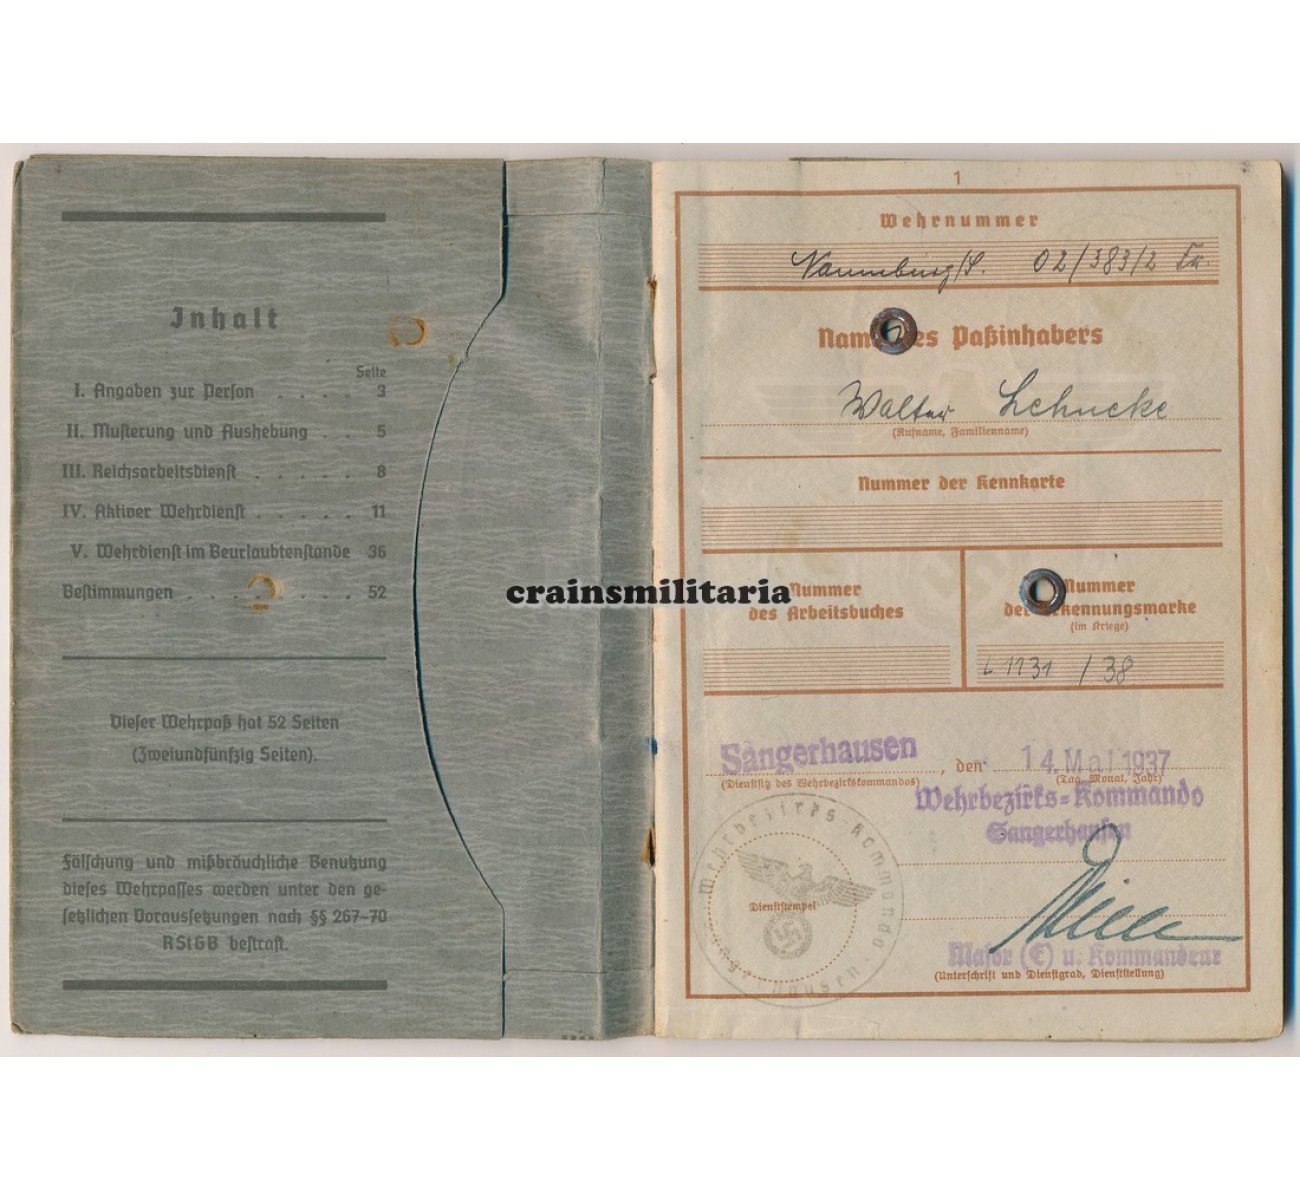 Inhalt
Seite
I. Angaben zur Person . . . . 3
II. Musterung und Aushebung . . 5
III. Reichsarbeitsdienst . . . . . 8
IV. Aktiver Wehrdienst . . . . . 11
V. Wehrdienst im Beurlaubtenstande 36
Bestimmungen . . . . . . . 52
Dieser Wehrpaß hat 52 Seiten
(Zweiundfünfzig Seiten).
Fälschung und mißbräuchliche Benutzung
dieses Wehrpasses werden unter den ge-
setzlichen Voraussetzungen nach §§ 267-70
RStGB bestraft.
crainsmilitaria
1
Wehrnummer
Naumburg/S. 02/383/2
Name des Paßinhabers
Walter Lehncke
(Rufname, Familienname)
Nummer der Kennkarte
Nummer
des Arbeitsbuches
Nummer
der Erkennungsmarke
(im Kriege)
1131 / 38
Sangerhausen, den 14. Mai 1937
(Dienstsitz des Wehrbezirkskommandos) (Tag, Monat, Jahr)
Wehrbezirks-Kommando
Sangerhausen
Wehrbezirks-Kommando Sangerhausen
Dienststempel
Major (E) u. Kommandeur
(Unterschrift und Dienstgrad, Dienststellung)